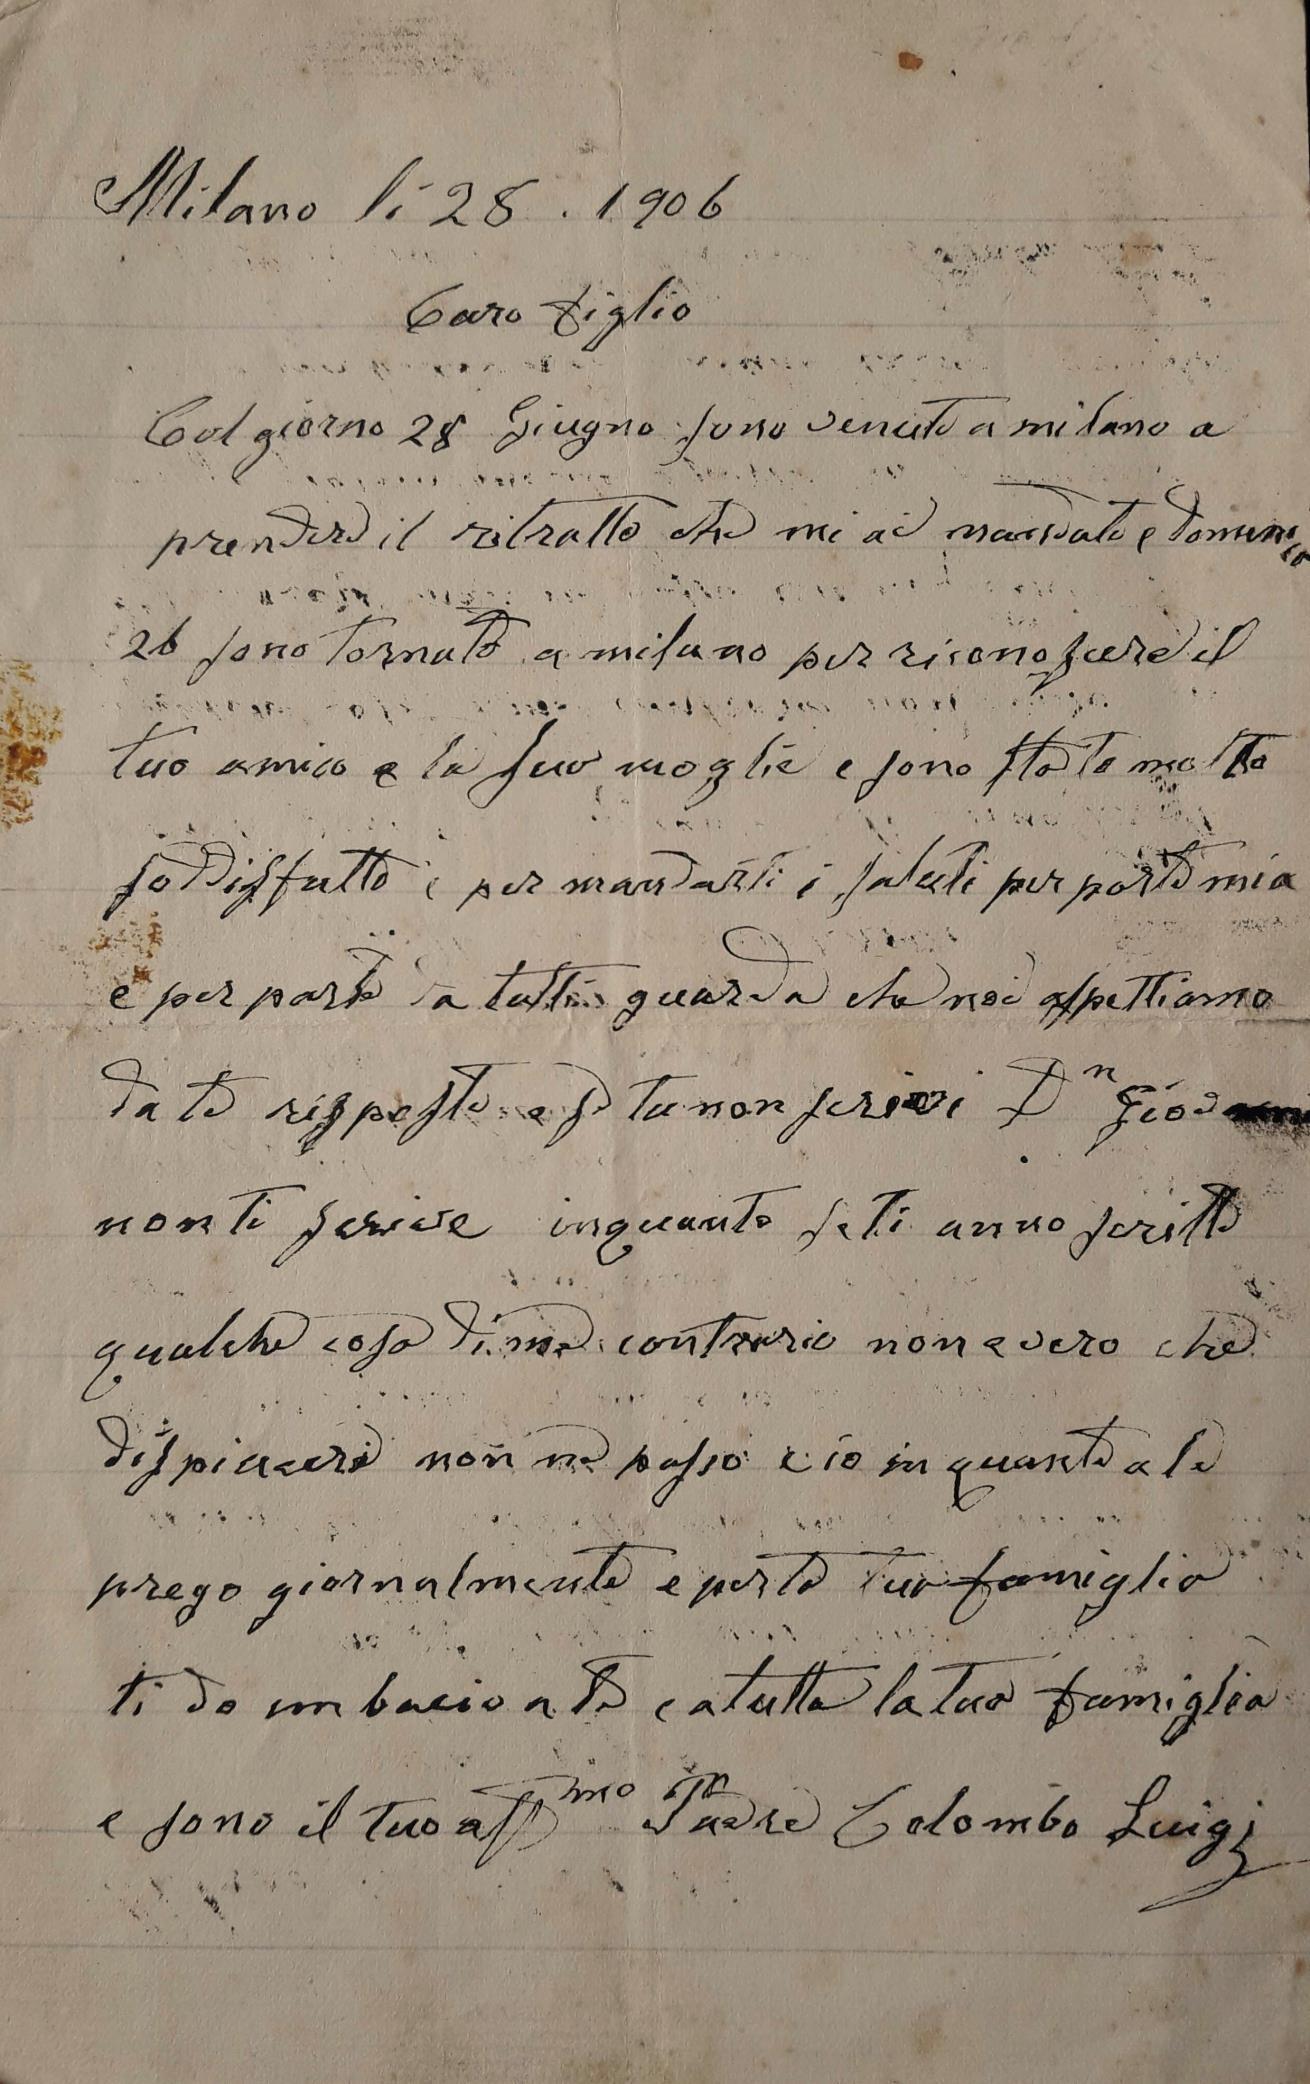 Milano li 28 . 1906
Caro figlio
Col giorno 28 Giugno sono venuto a milano a
prendere il ritratto che mi ai mandato e domenico
26 sono tornato a milano per riconoscere il
tuo amico e la suo moglie e sono stato molto
soddisfatto e per mandarti i saluti per parte mia
e per parte da tutti guarda che noi aspettiamo
da te risposte e se tu non scrivi Dn Giovanni
non ti scrive inquanto se ti anno scritto
qualche cosa di me contrario non e vero che
dispiacere non ne posso e io in quanto a le
prego giornalmente e per te tuo famiglia
ti do un bacio a te e a tutta la tua famiglia
e sono il tuo affmo Padre Colombo Luigi